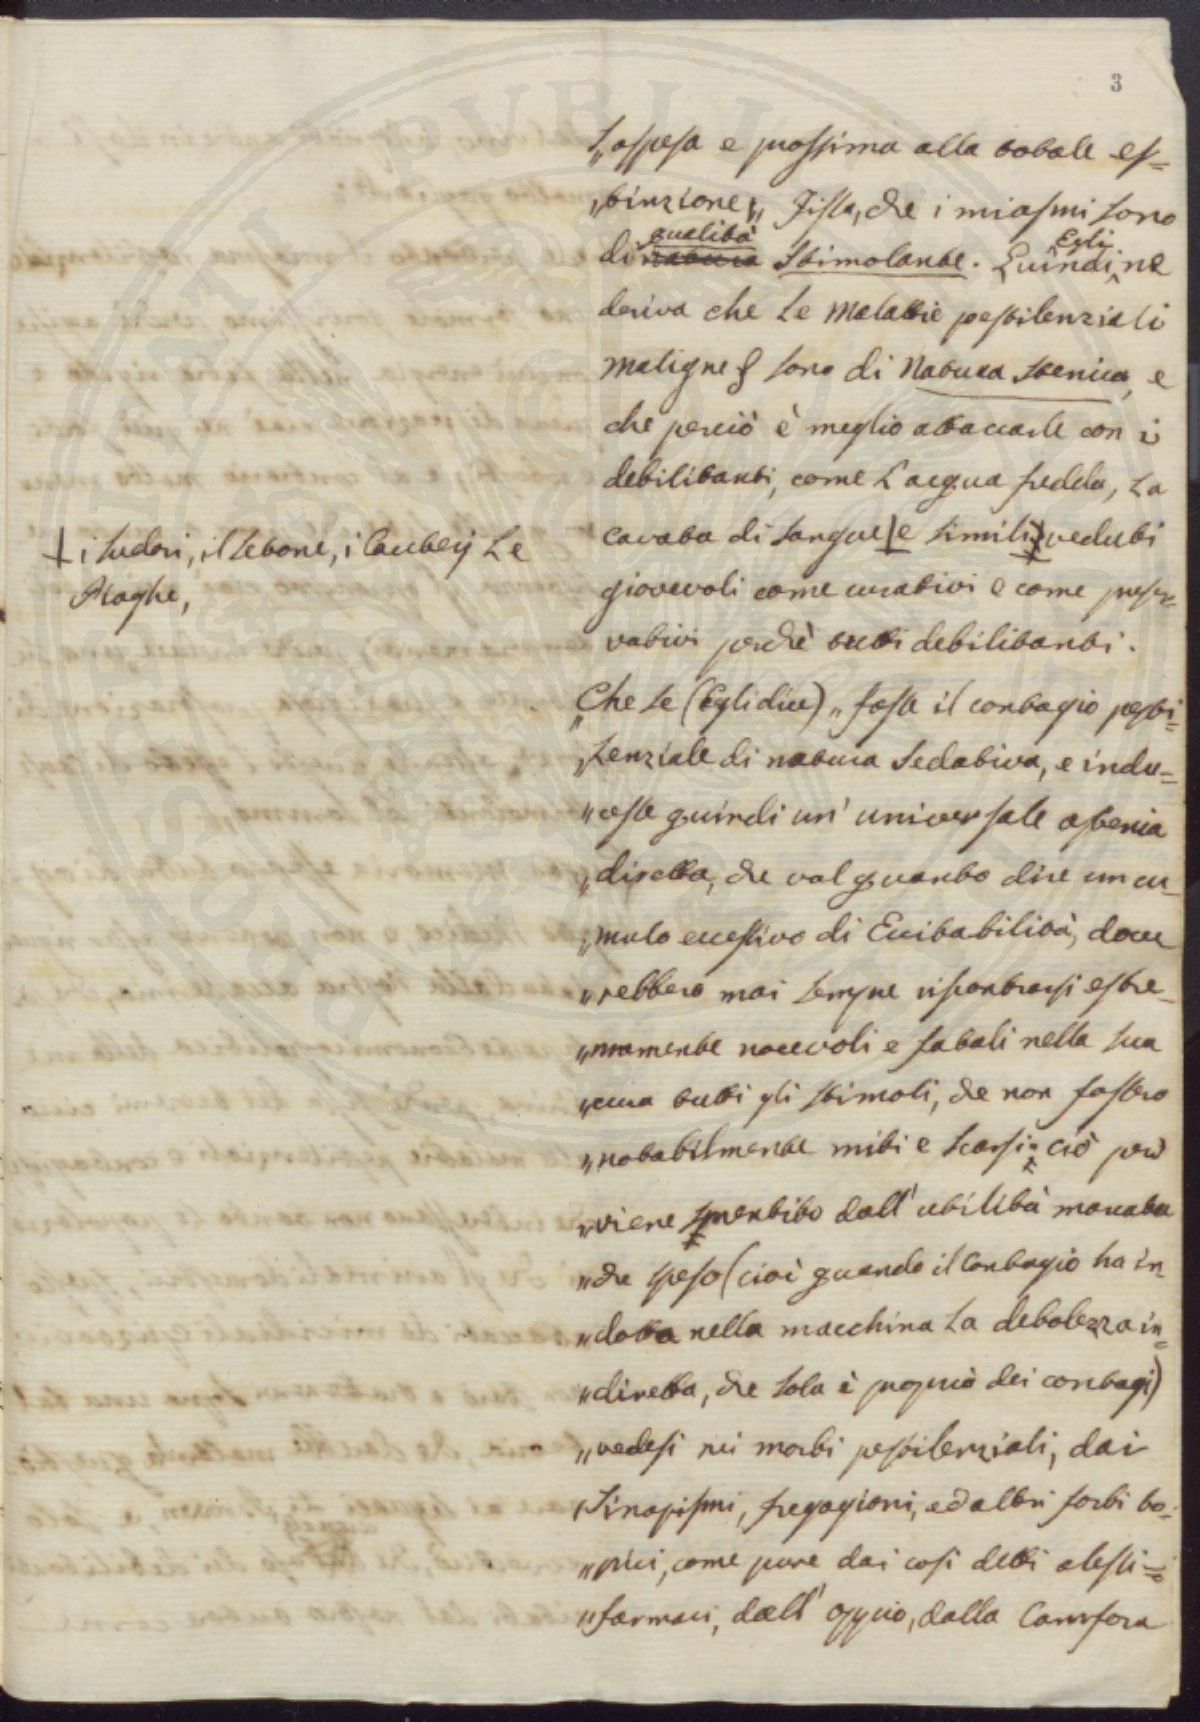 3
„sospesa e prossima alla totale es-
„tinzione„ Fissa, che i miasmi sono
qualità Egli
di natura stimolante. Quindi ne
deriva che le Malattie pestilenziali
maligne sono di Natura stenica, e
che perciò è meglio attaccarle con i
debilitanti, come l'acqua fredda, la
cavata di sangue e simili veduti
+ i sudori, il setone, i Cauterj le
Piaghe,
giovevoli come curativi e come preser-
vativi perchè tutti debilitanti.
„Che se (Egli dice) „ fosse il contagio pesti=
„lenziale di natura sedativa, e indu=
„cesse quindi un' universale astenia
„diretta, che val quanto dire un cu-
„mulo eccessivo di Eccitabilità, dove
„rebbero mai sempre riscontrarsi estre-
„mamente nocevoli e fatali nella sua
„cura tutti gli stimoli, che non fossero
„notabilmente miti e scarsi: ciò però
„viene smentito dall' utilità marcata
„che spesso (cioè quando il Contagio ha in-
„dotta nella macchina la debolezza in=
„diretta, che sola è propria dei contagi)
„vedesi nei morbi pestilenziali, dai
„Sinapismi, fregagioni, ed altri forti to-
„pici, come pure dai così detti alessi=
„farmaci, dall' oppio, dalla Canfora